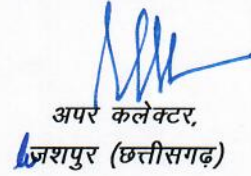 अपर कलेक्टर,
जशपुर (छत्तीसगढ़)